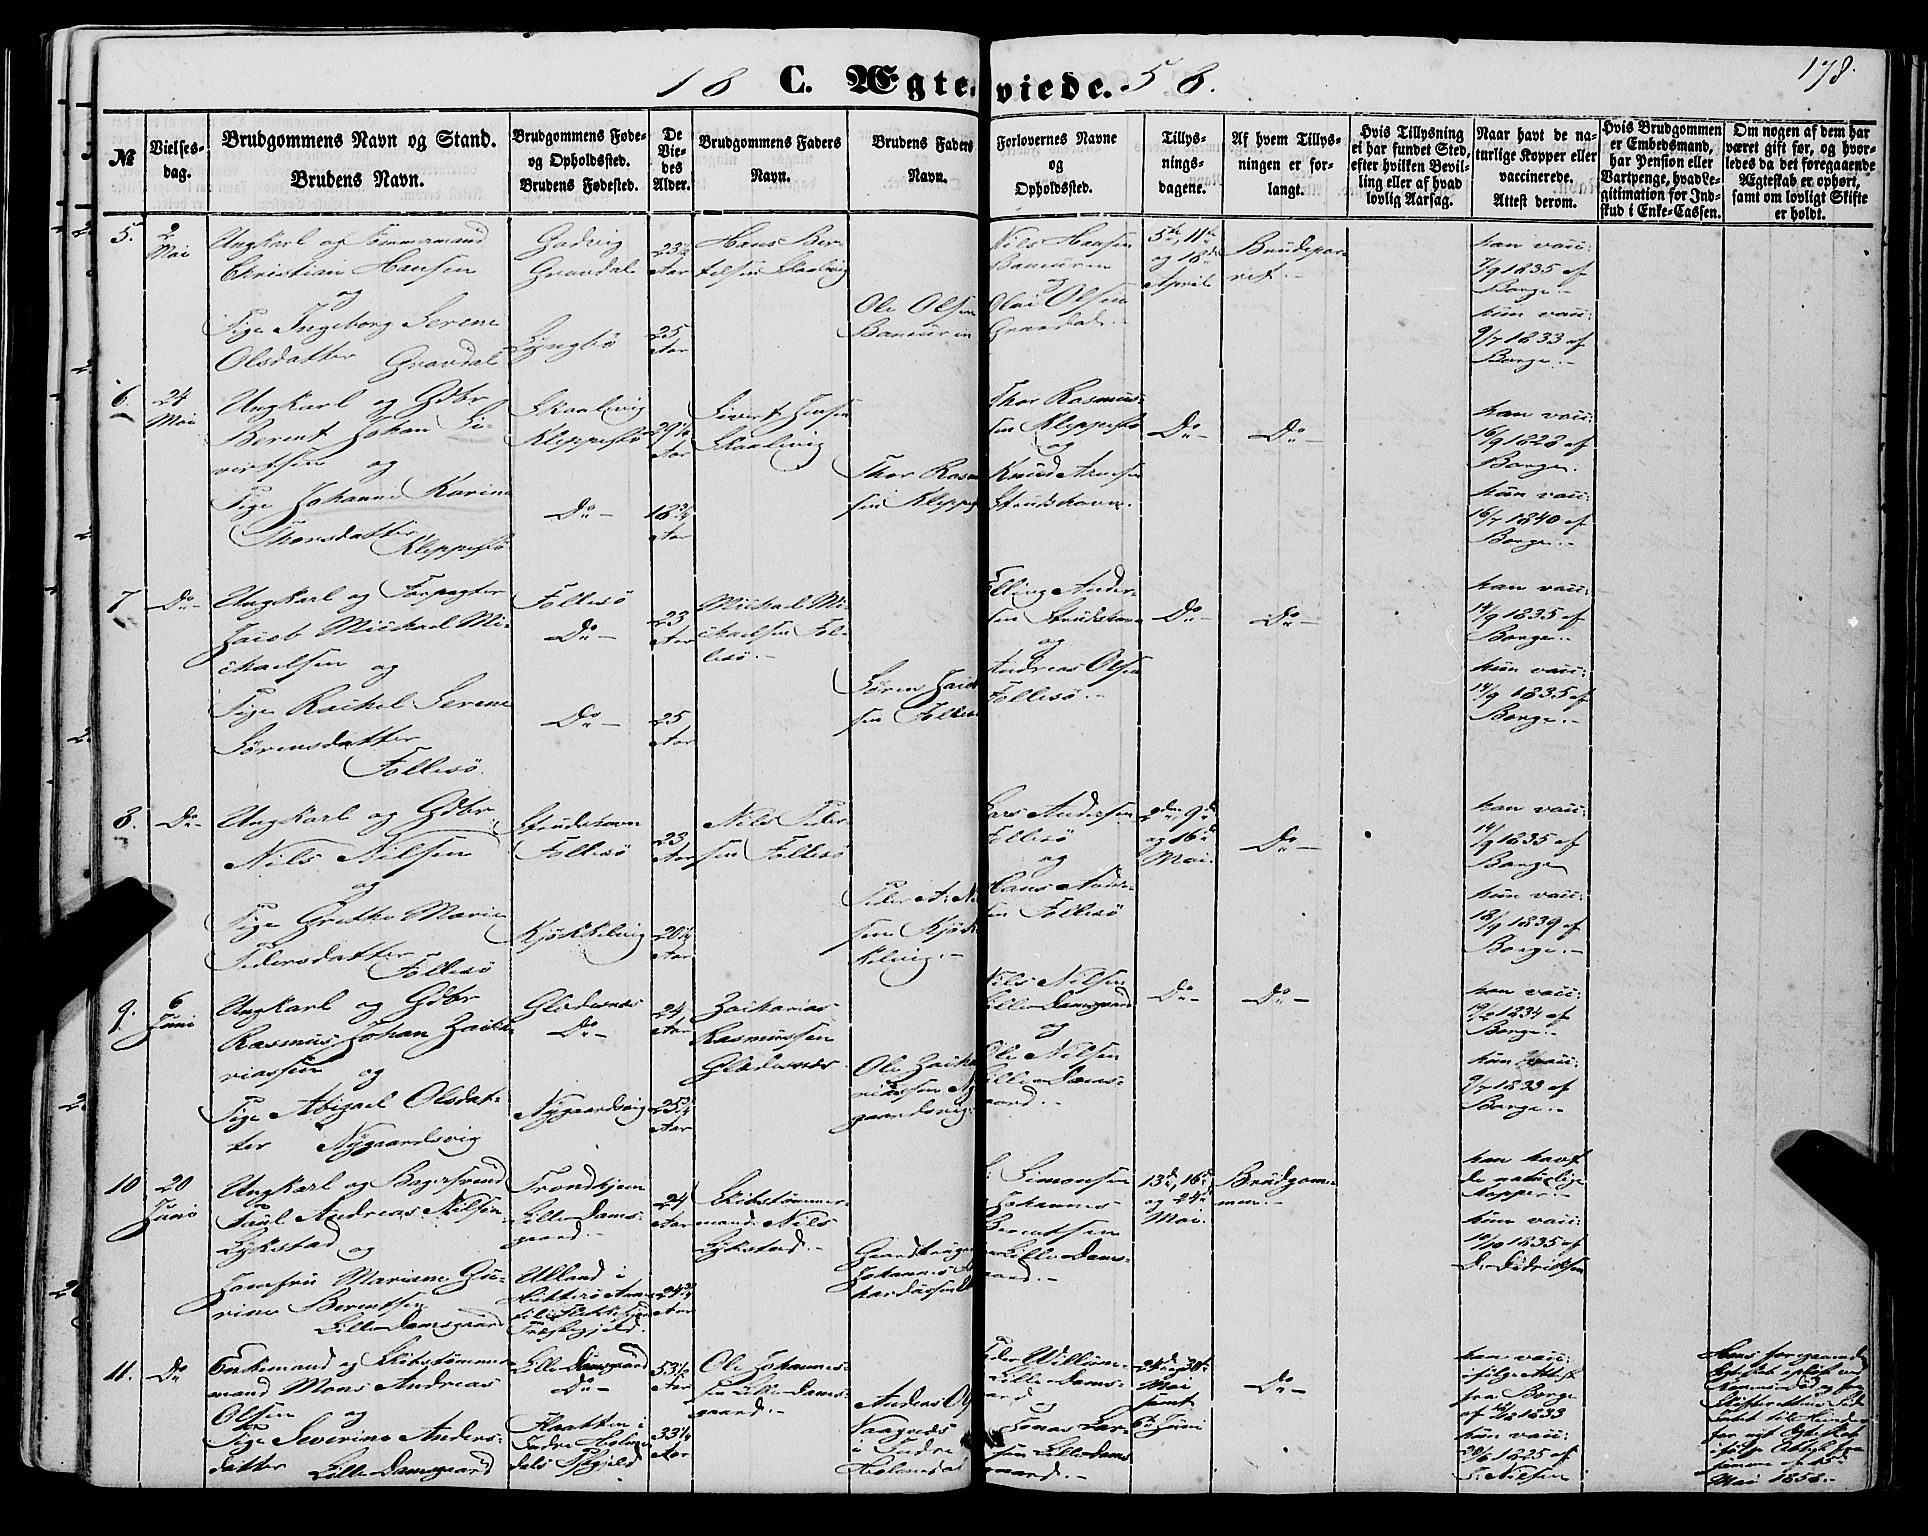 18 C. Ægteviede. 58.
178.
№
Vielses-
dag.
Brudgommens Navn og Stand.
Brudens Navn.
Brudgommens Føde-
og Opholdssted.
Brudens Fødested.
De
Vie-
des
Alder.
Brudgommens Faders
Navn.
Brudens Faders
Navn.
Forlovernes Navne
og
Opholdssted.
Tillys-
nings-
dagene.
Af hvem Tillys-
ningen er for-
langt.
Hvis Tillysning
ei har fundet Sted,
efter hvilken Bevil-
ling eller af hvad
lovlig Aarsag.
Naar havt de na-
turlige Kopper eller
vaccinerede.
Attest derom.
Hvis Brudgommen
er Embedsmand,
har Pension eller
Vartpenge, hvad Le-
gitimation for Ind-
skud i Enke-Cassen.
Om nogen af dem har
været gift før, og hvor-
ledes da det foregaaende
Ægteskab er ophørt,
samt om lovligt Skifte
er holdt.
5.
2
Mai
Ungkarl og Tømmermand
Christian Hansen
og
Pige Ingeborg Serene
Olsdatter Gravdal
Gravdal
Lyngbø
23½
Aar
25
Aar
Hans Ber-
telsen Skaalevig
Ole Olsen
Baneüren
Nils Hansen
Baneüren
og
Olai Olsen
Gravdal.-
5te, 11te
og 18de
April
Brüdepar-
ret.-
han vacc:
7/9 1835 af
Borge.-
hün vacc:
9/7 1833 af
Borge.-
6.
24
Mai
Ungkarl og Gdbr
Berent Johan Si-
vertsen og
Pige Johanne Karine
Thorsdatter
Kleppestø
Skaalevig
Kleppestø
Do-
Aar
18¾
Aar
Sivert Jensen
Skaalevig
Thor Rasmu
sen Kleppes
Thor Rasmüs-
sen Kleppestø
og
Knüd Arnesen
Strüdshavn.
Do-
Do-
han vacc:
16/9 1828 af
Borge.
hün vacc:
16/7 1840 af
Borge.-
7
Do-
Ungkarl og Forpagter
Jacob Michael Mi-
chaelsen og
Pige Rachel Serene
Sørensdatter
Follesø.
Follesø
Do-
Do-
23
Aar
25
Aar
Michael Mi-
chaelsen Fol-
lesø.-
Søren
sen Follesø
Elling Ander-
sen Strüdshavn
og
Andreas Olsen
Follesø.-
Do-
Do-
han vacc:
14/9 1835 af
Borge.-
hün vacc:
14/9 1835 af
Borge.-
8.
Do-
Ungkarl og Gdbr
Nils Nilsen
og
Pige Grethe Marie
Pedersdatter
Follesø
Strüdshavn
Follesø
Kjøkkelvig
23
Aar
20¼
Aar
Nils Peder-
sen Follesø
Peder A. Ni
sen Kjøk-
kelvig.-
Lars Andersen
Follesø
og
Hans Ander-
sen Follesø
2den, 9de
og 16de
Mai.
Do-
han vacc:
14/9 1835 af
Borge
hün vacc:
18/9 1839 af
Borge.-
9.
6
Jüni
Ungkarl og Gdbr
Rasmüs Johan Zacha-
riassen og
Pige Abigael Olsdat-
ter Nygaardsvig
Gledesnæs
Do-
Nygaardsvig
24
Aar
25¾
Aar
Zacharias
Rasmüssen
Gledesnæs
Ole Zacha
riassen Ny
gaardsvig.
Nils Nilsen
Lille Damsgaard
og
Ole Nilsen
Lille Dams-
gaard.-
Do-
Do-
han vacc:
1834 af
Borge.-
hün vacc:
9/7 1833 af
Borge.-
10
20
Jüni
Ungkarl og Bagersvend
Paul Andreas Nilsen
Lykstad og
Jomfrü Mariane Gü-
rine Berentsen
Lille Damsgaard
Trondhjem
Lille Dams-
gaard.-
24
Aar
24¾
Aar
Skibstømmer-
mand Nils
Lykstad.-
Johannes
Simonsen
Johannes
Berentsen
Lille Dams-
gaard.-
13de, 16de
og 24de
Mai.
Brüdgom-
men.-
han havt
de natürlige
Kopper.-
hün vacc:
1835 af
D. Didriksen
11.
Do
Enkemand og Skibstømmer-
mand Mons Andreas
Olsen og
Pige Severine Anders-
datter Lille Damsgaard
Lille Damsgaard
Do-
Flaatten i
Indre Holme-
dals Præstegjeld
53½
Aar
33¼
Aar
Ole Johannes-
sen Lille Dams-
gaard.-
Anders
i Indre
Holmedal
Peder Willüm-
Lille Dams-
gaard
Jonas Lar-
sen Lille Dams-
gaard.-
Mai
samt
6te Jüni
Do-
han vacc:
ifølge Attest
fra Borge
1833
hün vacc:
1825 af
Nilsen
Hans foregaaende
Ægteskab opløst ved
Mai 1858.-